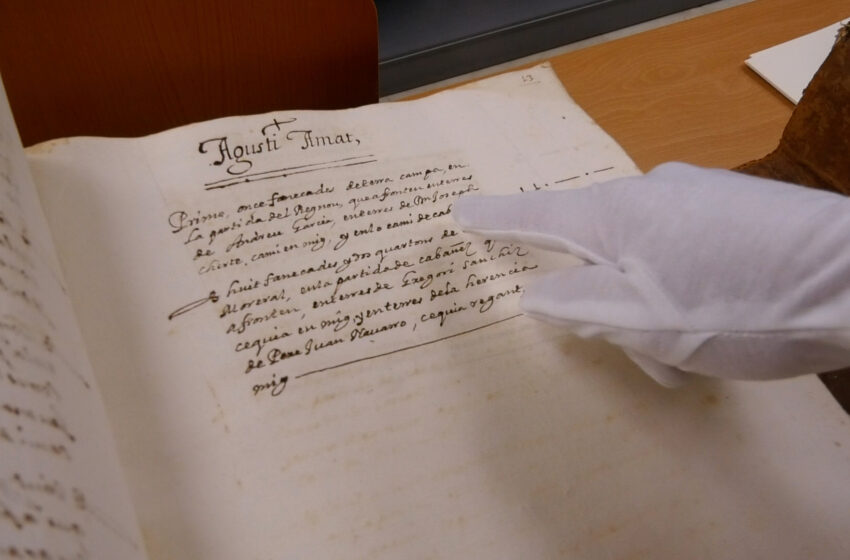 13
Agustí Amat,
Primo, once fanecades de terra campa, en
la partida del Regnou, que afronten en terres
de Andreu Garcia, en terres de Joseph
cami en mig, y en lo cami de
huit fanecades y dos quartons de
Moreral, en la partida de cabañez y
afronten, en terres de Gregori Sanchiz
cequia en mig, y en terres de la herencia
de Pere Juan Navarro, cequia regant
mig